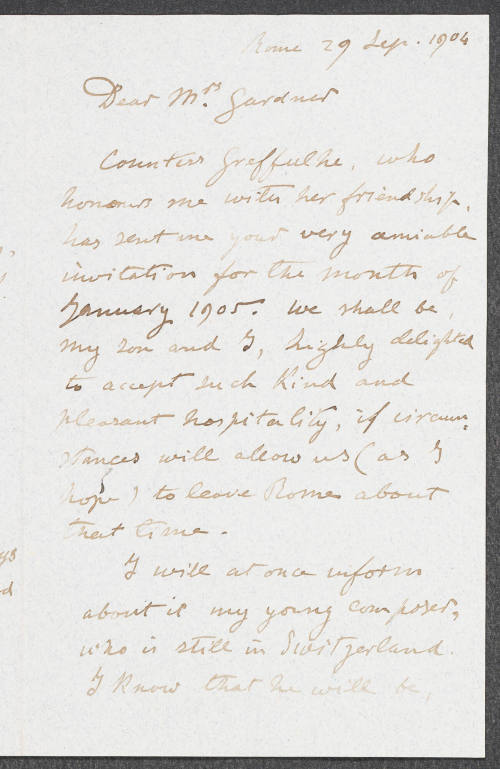 Rome 29 Sep. 1904
Dear Mrs. Gardner
Countess Greffulhe, who
honours me with her friendship,
has sent me your very amiable
invitation for the month of
January 1905. We shall be,
my son and I, highly delighted
to accept such kind and
pleasant hospitality, if circum-
stances will allow us (as I
hope) to leave Rome about
that time.
I will at once inform
about it my young composer,
who is still in Switzerland.
I know that he will be,